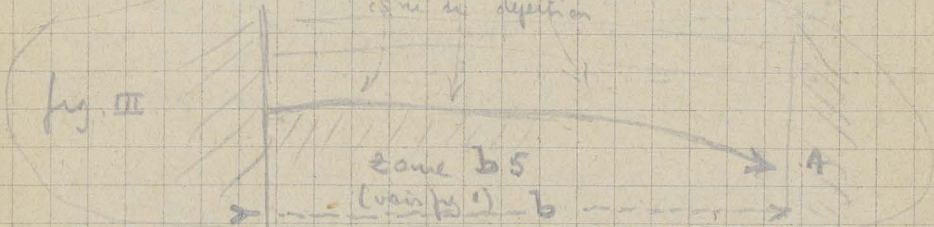 cône de déjection
fig. III
zone b5
A
(voir fig 1) b